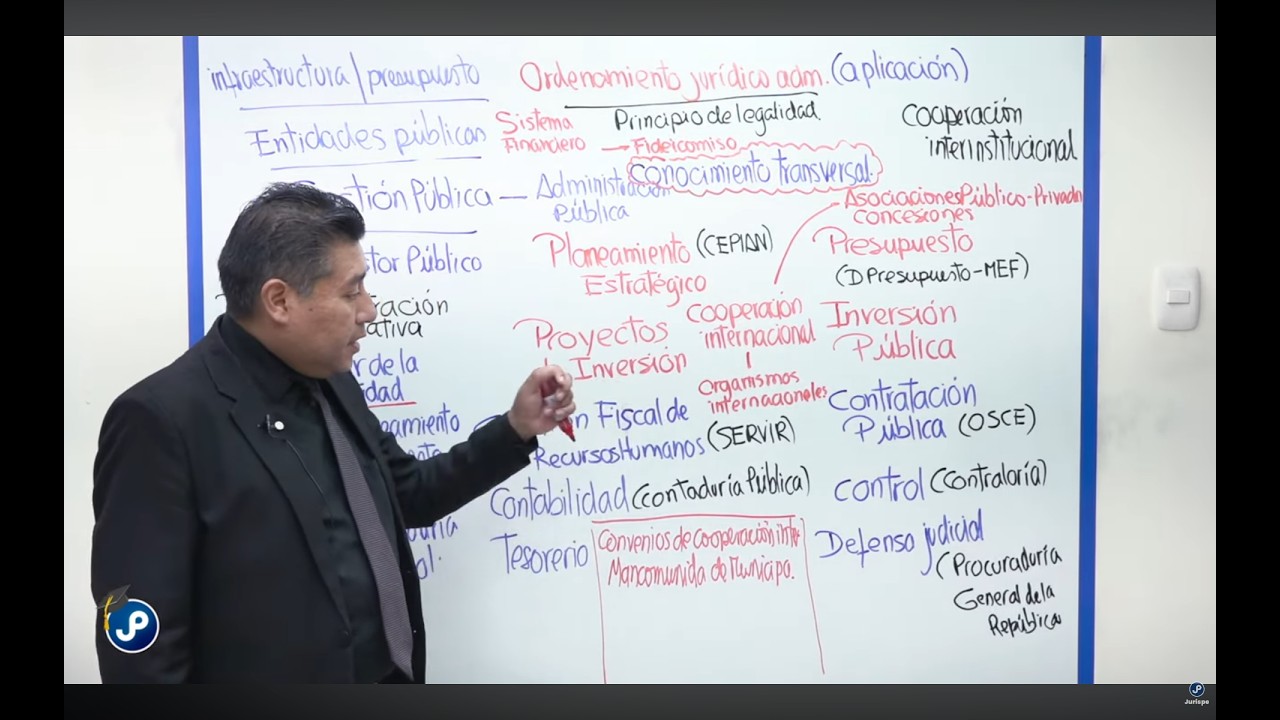 infraestructura / presupuesto
Ordenamiento jurídico adm. (aplicación)
Principio de legalidad.
Entidades públicas
Sistema
Financiero → Fideicomiso
Cooperación
interinstitucional
conocimiento transversal.
tión Pública — Administración
Pública
Asociaciones Público-Privada
Concesiones
tor Público
Planeamiento (CEPLAN)
Estratégico
Presupuesto
(D Presupuesto-MEF)
ración
ativa
Proyectos
Inversión
Cooperación
internacional
Organismos
internacionales
Inversión
Pública
r de la
idad
amiento
n Fiscal de
Recursos Humanos (SERVIR)
Contratación
Pública (OSCE)
Contabilidad (contaduría Pública)
control (Contraloría)
Tesorerio
Convenios de cooperación inte
Mancomunida de Municipa.
Defensa judicial
(Procuraduría
General de la
República
JP
JP
Jurispe